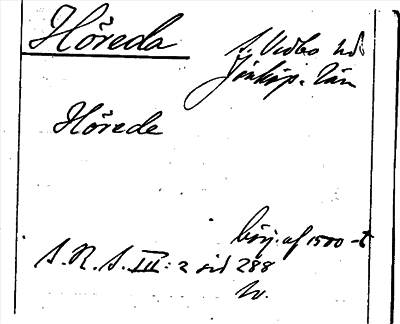 Höreda
S. Vedbo hd
Jönköp. län
Hörede
börj. af 1500-t
S. R. S. III: 2 sid 288